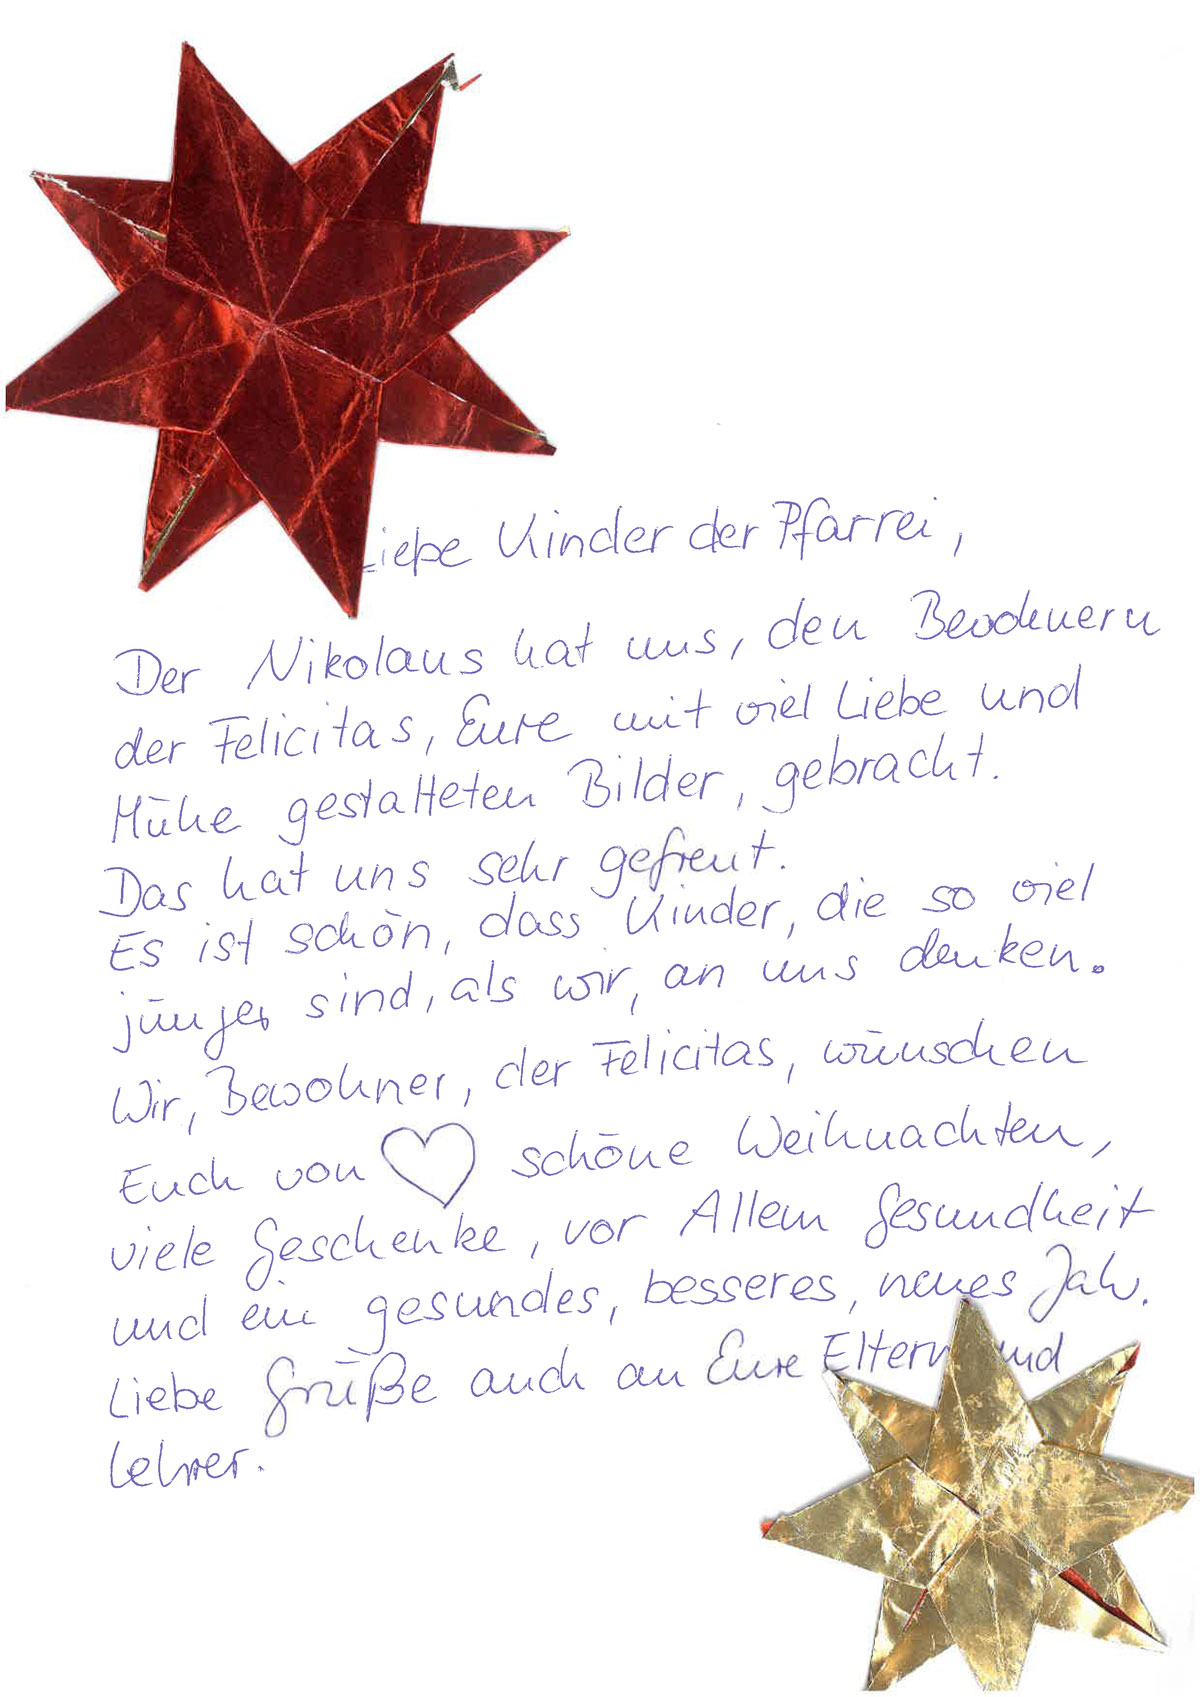 Liebe Kinder der Pfarrei,
Der Nikolaus hat uns, den Bewohnern
der Felicitas, Eure mit viel Liebe und
Mühe gestalteten Bilder, gebracht.
Das hat uns sehr gefreut.
Es ist schön, dass Kinder, die so viel
jünger sind, als wir, an uns denken.
Wir, Bewohner, der Felicitas, wünschen
Euch von ♡ schöne Weihnachten,
viele Geschenke, vor Allem Gesundheit
und ein gesundes, besseres, neues Jahr.
Liebe Grüße auch an Eure Eltern und
Lehrer.